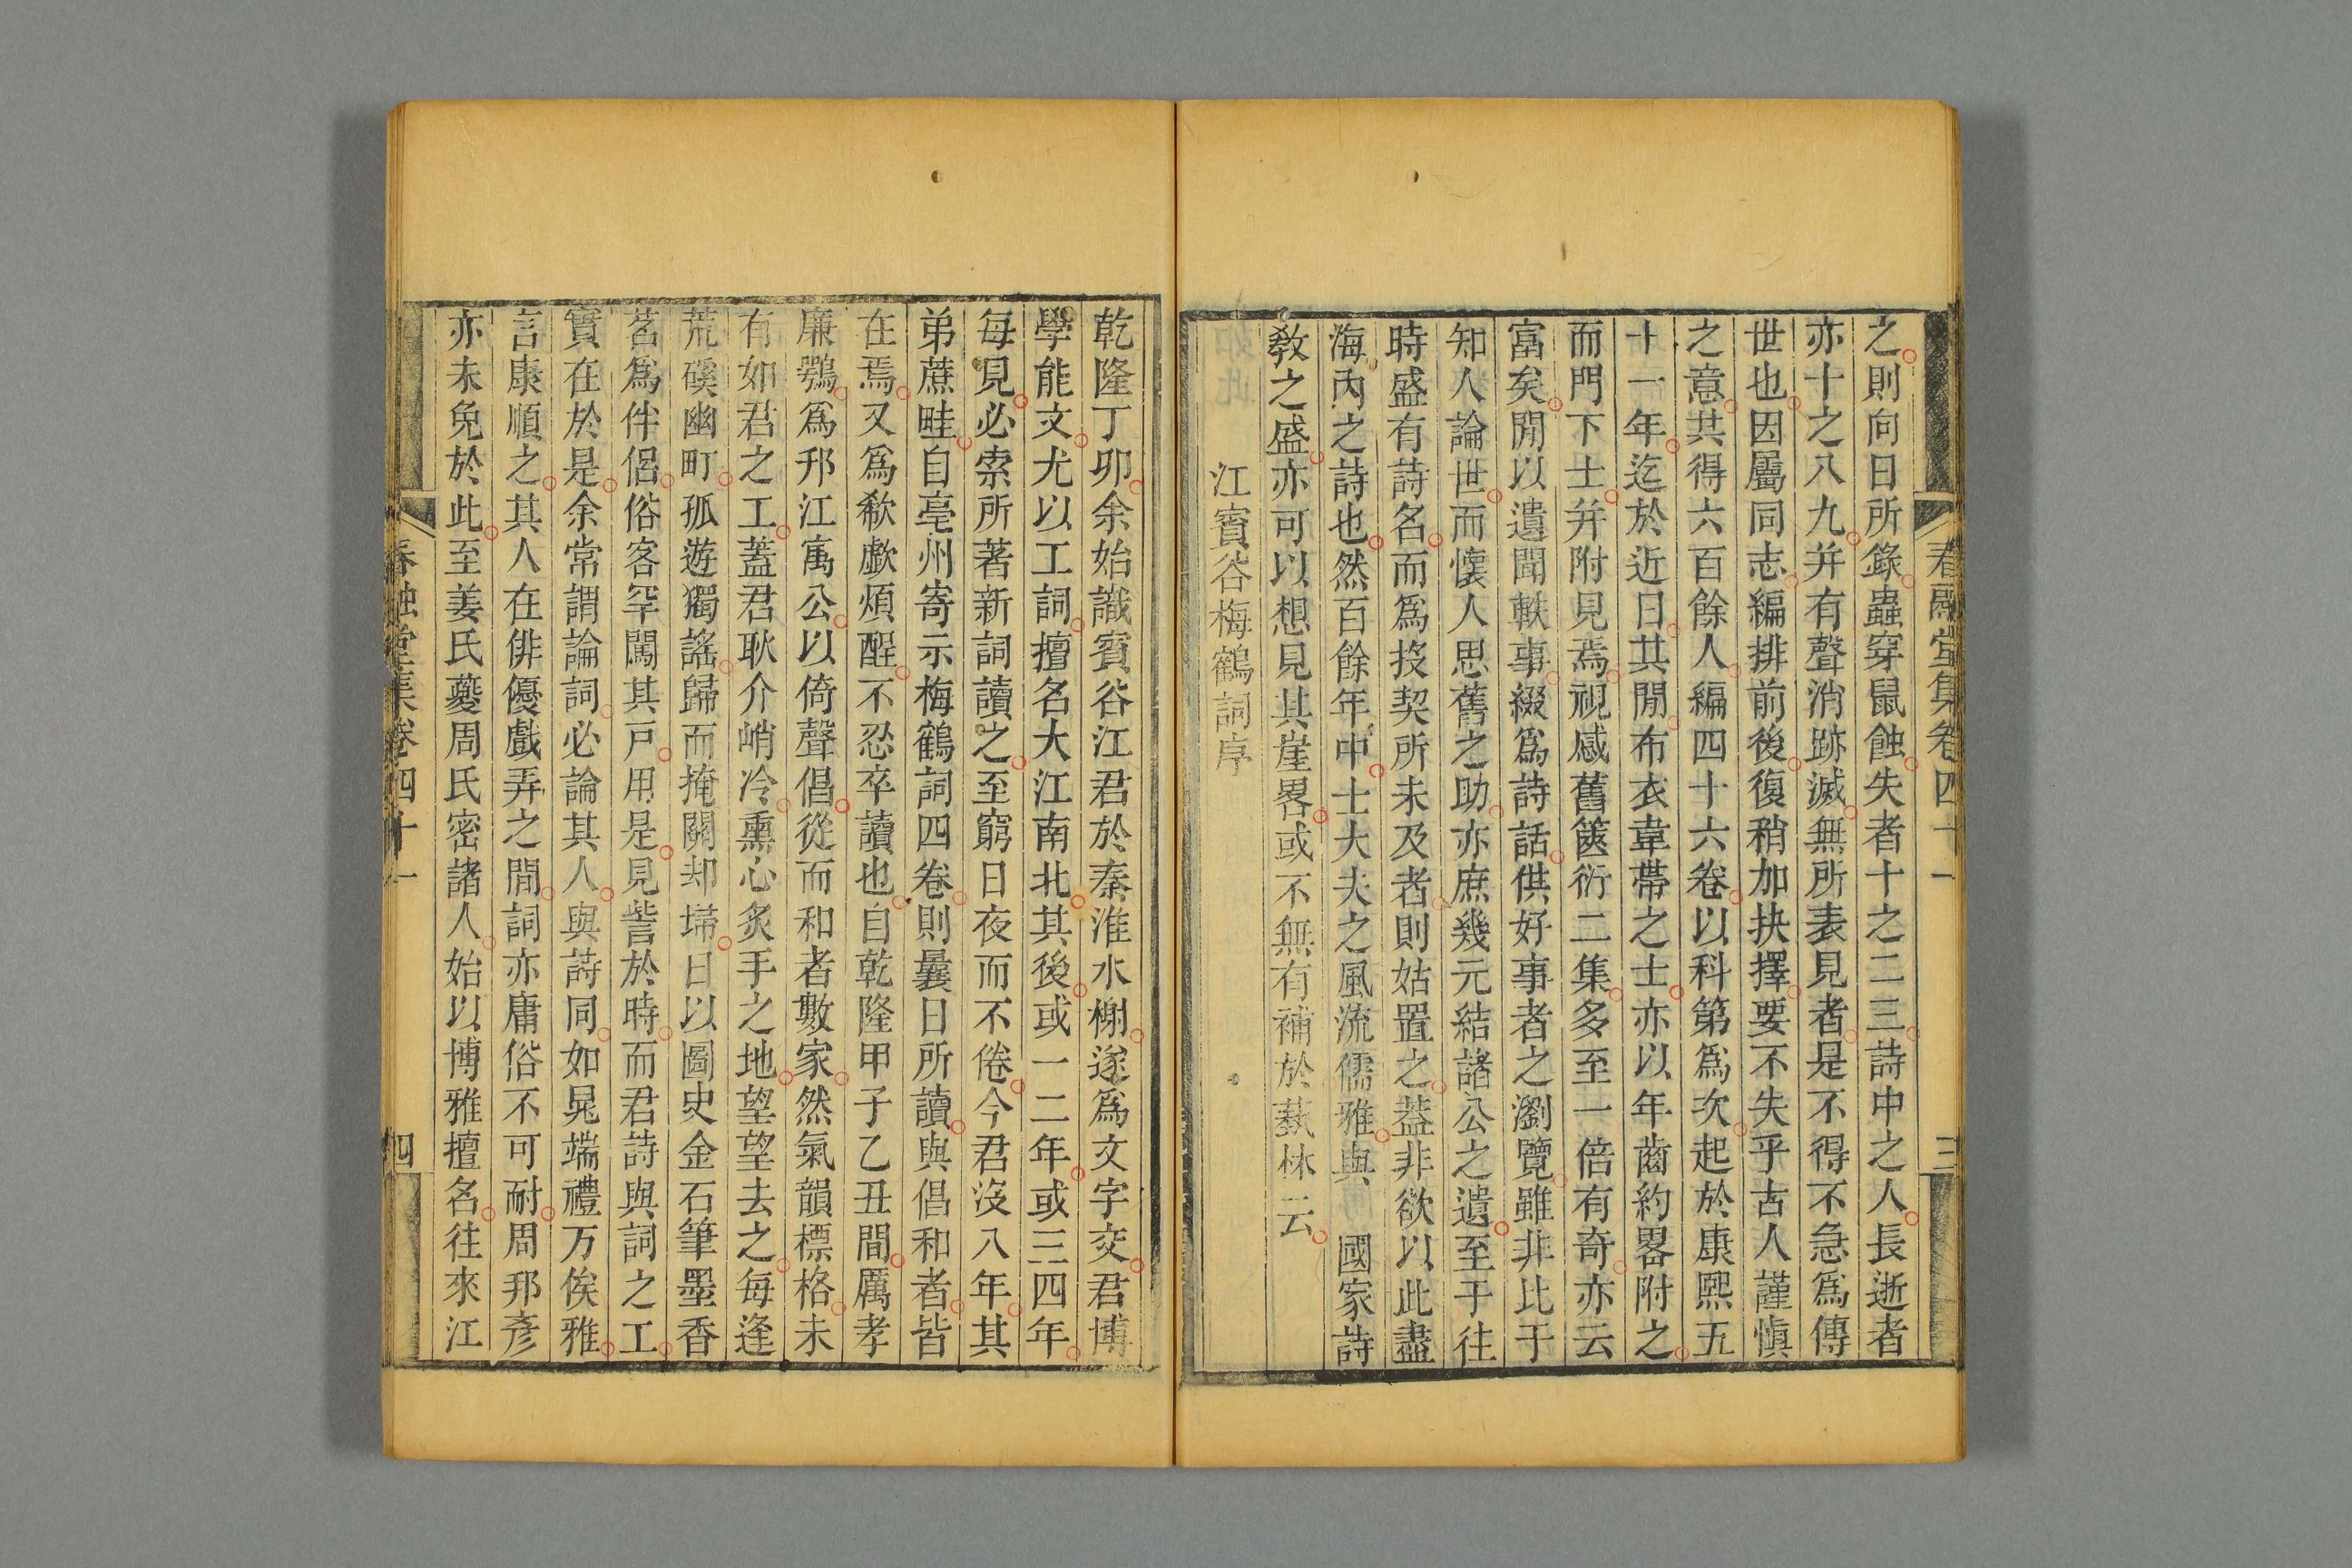 之則向日所錄蟲穿鼠蝕失者十之二三詩中之人長逝者
亦十之八九并有聲消跡滅無所表見者是不得不急為傳
世也因屬同志編排前後復稍加抉擇要不失乎古人謹慎
之意共得六百餘人編四十六卷以科第為次起於康熙五
十一年迄於近日其閒布衣韋帶之士亦以年齒約畧附之
而門下士并附見焉視感舊篋衍二集多至一倍有奇亦云
富矣閒以遺聞軼事綴為詩話供好事者之瀏覽雖非比于
知人論世而懷人思舊之助亦庶幾元結諸公之遺至于往
時盛有詩名而為投契所未及者則姑置之葢非欲以此盡
海內之詩也然百餘年中士大夫之風流儒雅與 國家詩
教之盛亦可以想見其崖畧或不無有補於蓺林云
江賓谷梅鶴詞序
春融堂集卷四十一
三
乾隆丁卯余始識賓谷江君於秦淮水榭遂為文字交君博
學能文尤以工詞擅名大江南北其後或一二年或三四年
每見必索所著新詞讀之至窮日夜而不倦今君沒八年其
弟蔗畦自亳州寄示梅鶴詞四卷則曩日所讀與倡和者皆
在焉又為欷歔煩酲不忍卒讀也自乾隆甲子乙丑間厲孝
廉鶚為邗江寓公以倚聲倡從而和者數家然氣韻標格未
有如君之工葢君耿介峭冷熏心炙手之地望望去之每逢
荒磎幽町孤遊獨謠歸而掩關却埽日以圖史金石筆墨香
茗為伴侶俗客罕闖其戸用是見訾於時而君詩與詞之工
實在於是余常謂論詞必論其人與詩同如晁端禮万俟雅
言康順之其人在俳優戲弄之間詞亦庸俗不可耐周邦彥
亦未免於此至姜氏夔周氏密諸人始以博雅擅名往來江
春融堂集卷四十一
四